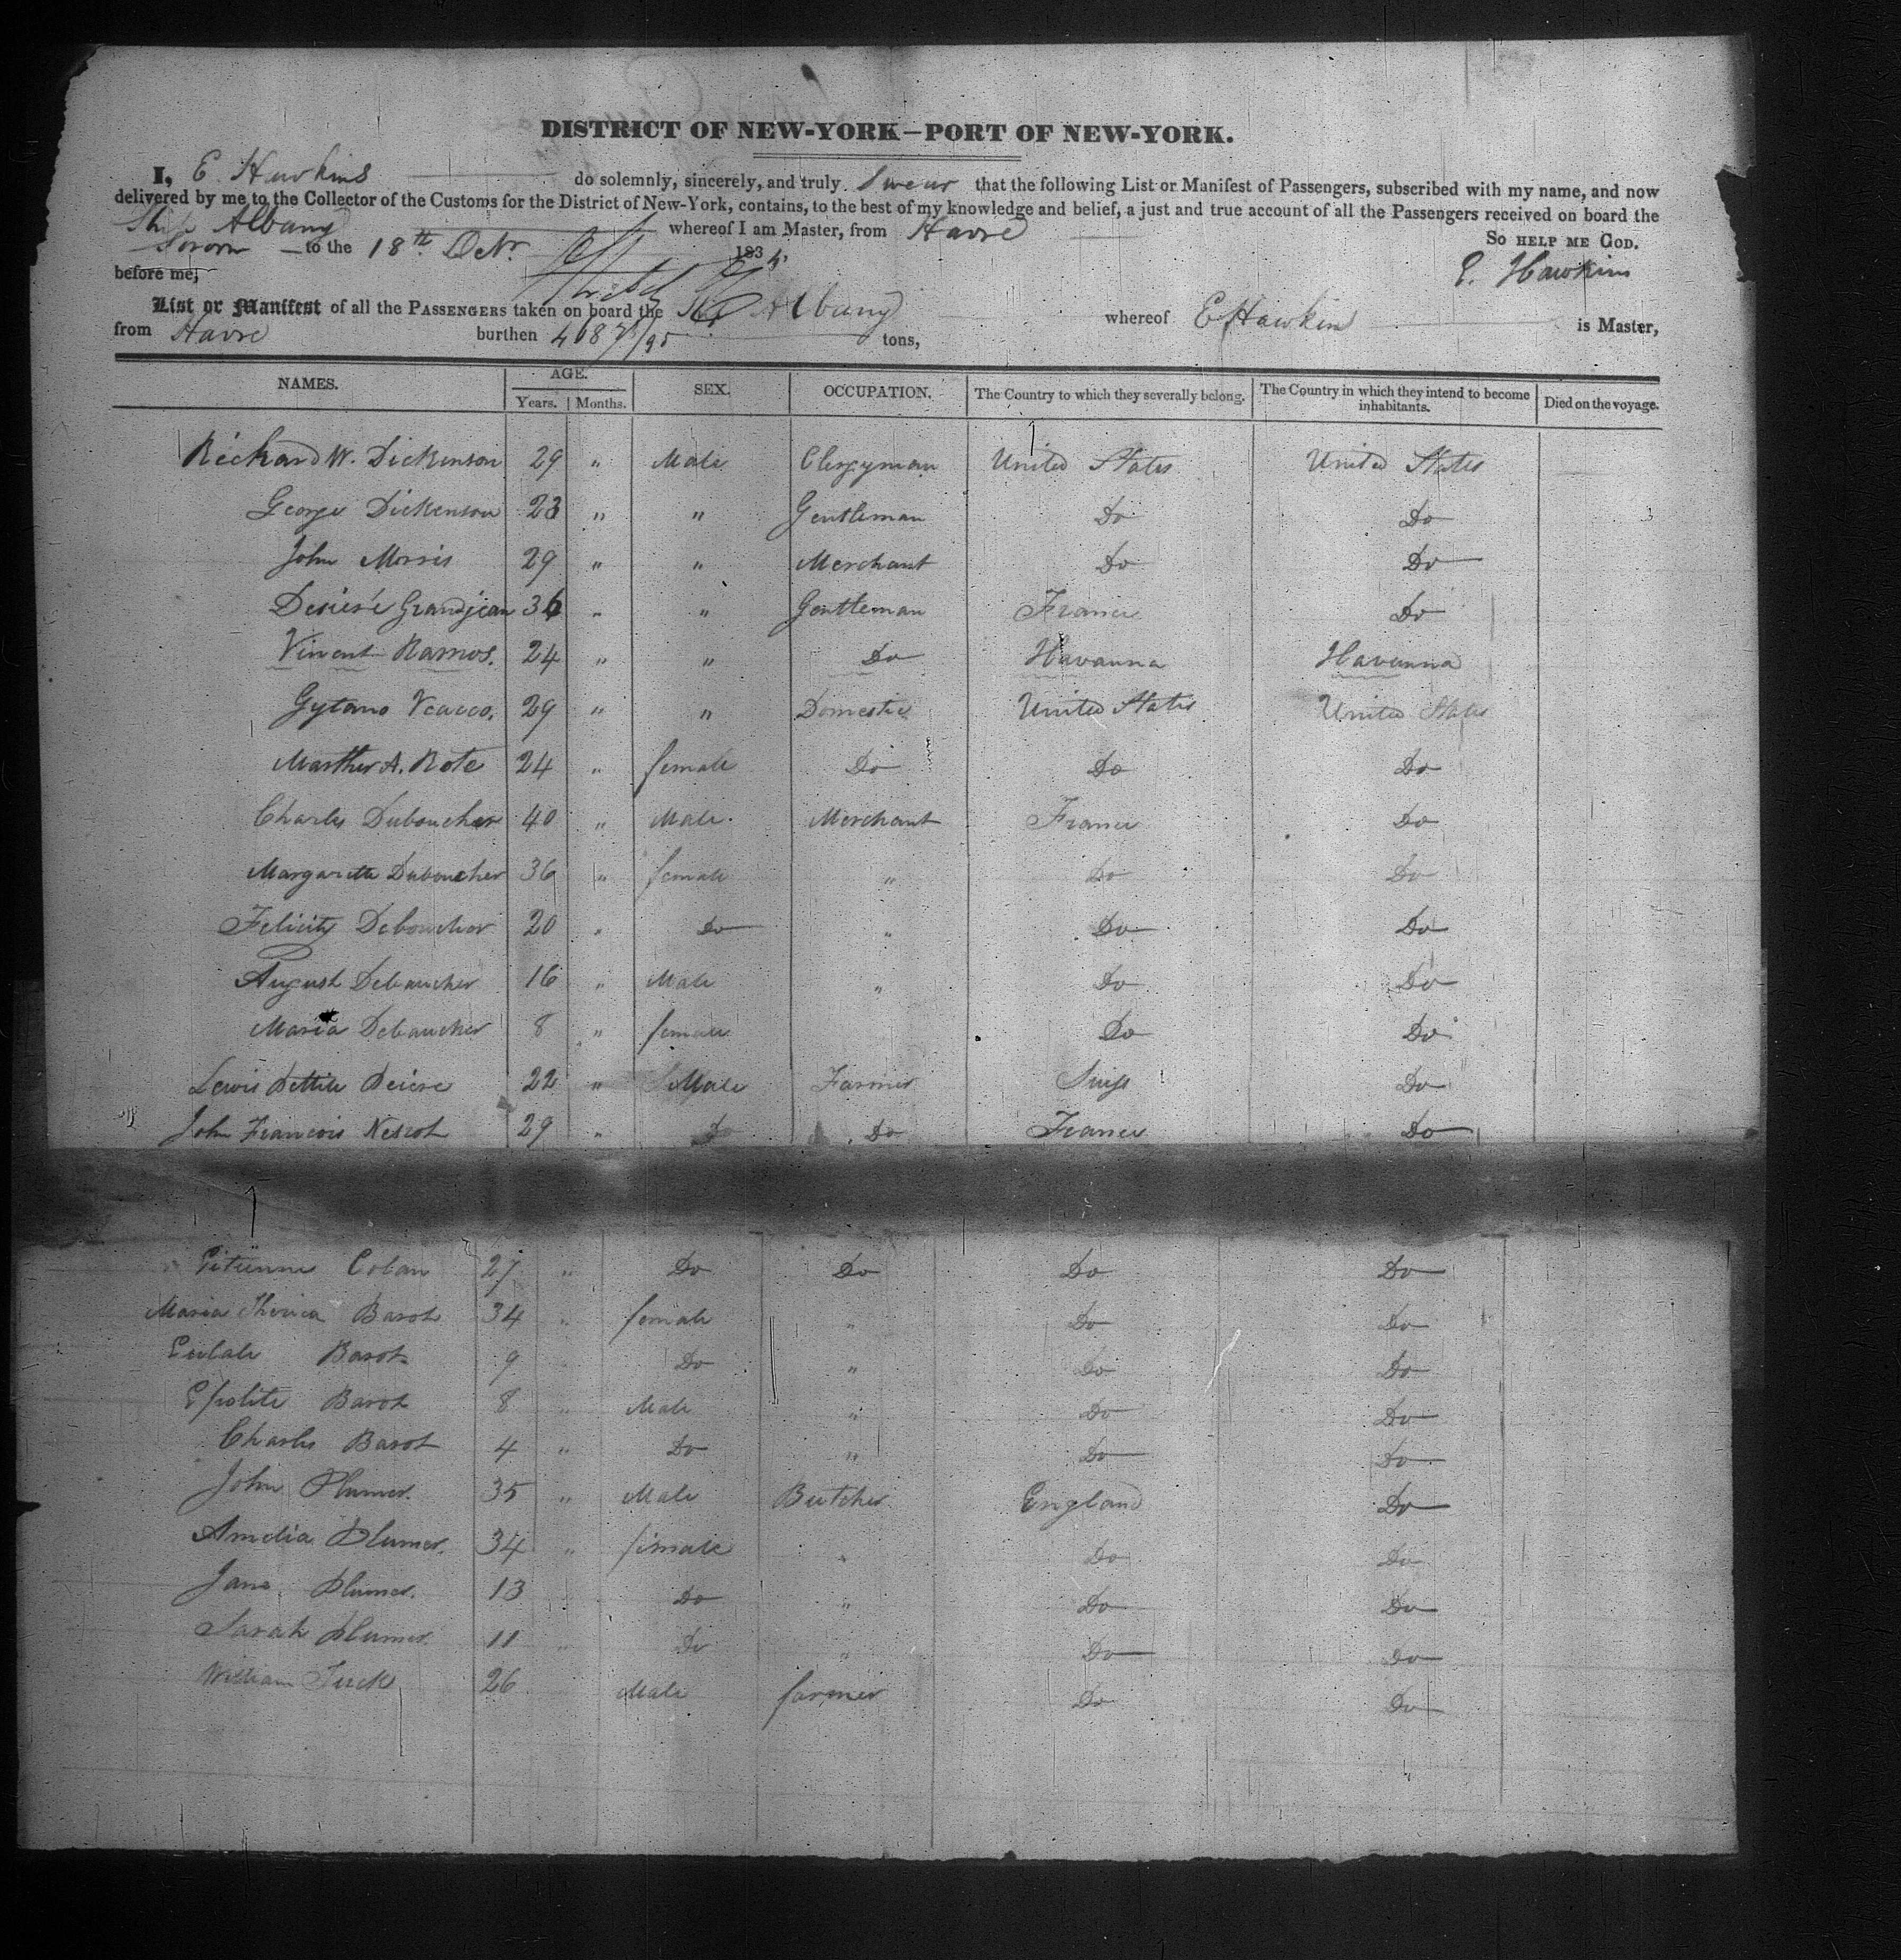 DISTRICT OF NEW-YORK—PORT OF NEW-YORK.
I, E. Hawkins do solemnly, sincerely, and truly Swear that the following List or Manifest of Passengers, subscribed with my name, and now
delivered by me to the Collector of the Customs for the District of New-York, contains, to the best of my knowledge and belief, a just and true account of all the Passengers received on board the
Ship Albany whereof I am Master, from Havre
So HELP ME GOD.
Sworn to the 18th Oct. 1834.
before me, E. Hawkins
List or Manifest of all the PASSENGERS taken on board the Albany whereof E Hawkins is Master,
from Havre burthen tons,
NAMES. AGE. SEX. OCCUPATION. The Country to which they severally belong. The Country in which they intend to become inhabitants. Died on the voyage.
Years. Months.
Richard W. Dickenson 29 " Male Clergyman United States United States
George Dickenson 23 " " Gentleman Do Do
John Morris 29 " " Merchant Do Do
Desiré Grandjean 36 " " Gentleman France Do
Vincent Ramos. 24 " " Do Havanna Havanna
Gytano 29 " " Domestic United States United States
Marther A. Rote 24 " female Do Do Do
Charles Duboucher 40 " Male. Merchant France Do
Margarette Duboucher 36 " female " Do Do
Felicity Deboucher 20 " Do " Do Do
August Deboucher 16 " Male " Do Do
Maria Deboucher 8 " female Do Do
Lewis 22 " Male Farmer Swiss Do
John Francois 29 " Do Do France Do
Colan 27 " Do Do Do Do
Maria Barot 34 " female " Do Do
Eulale Barot 9 " Do " Do Do
Epolite Barot 8 " Male " Do Do
Charles Barot 4 " Do " Do Do
John Plumer. 35 " Male Butcher England Do
Amelia Plumer. 34 " female " Do Do
Jane Plumer. 13 Do " Do Do
Sarah Plumer 11 Do " Do Do
William Tuck 26 Male farmer Do Do